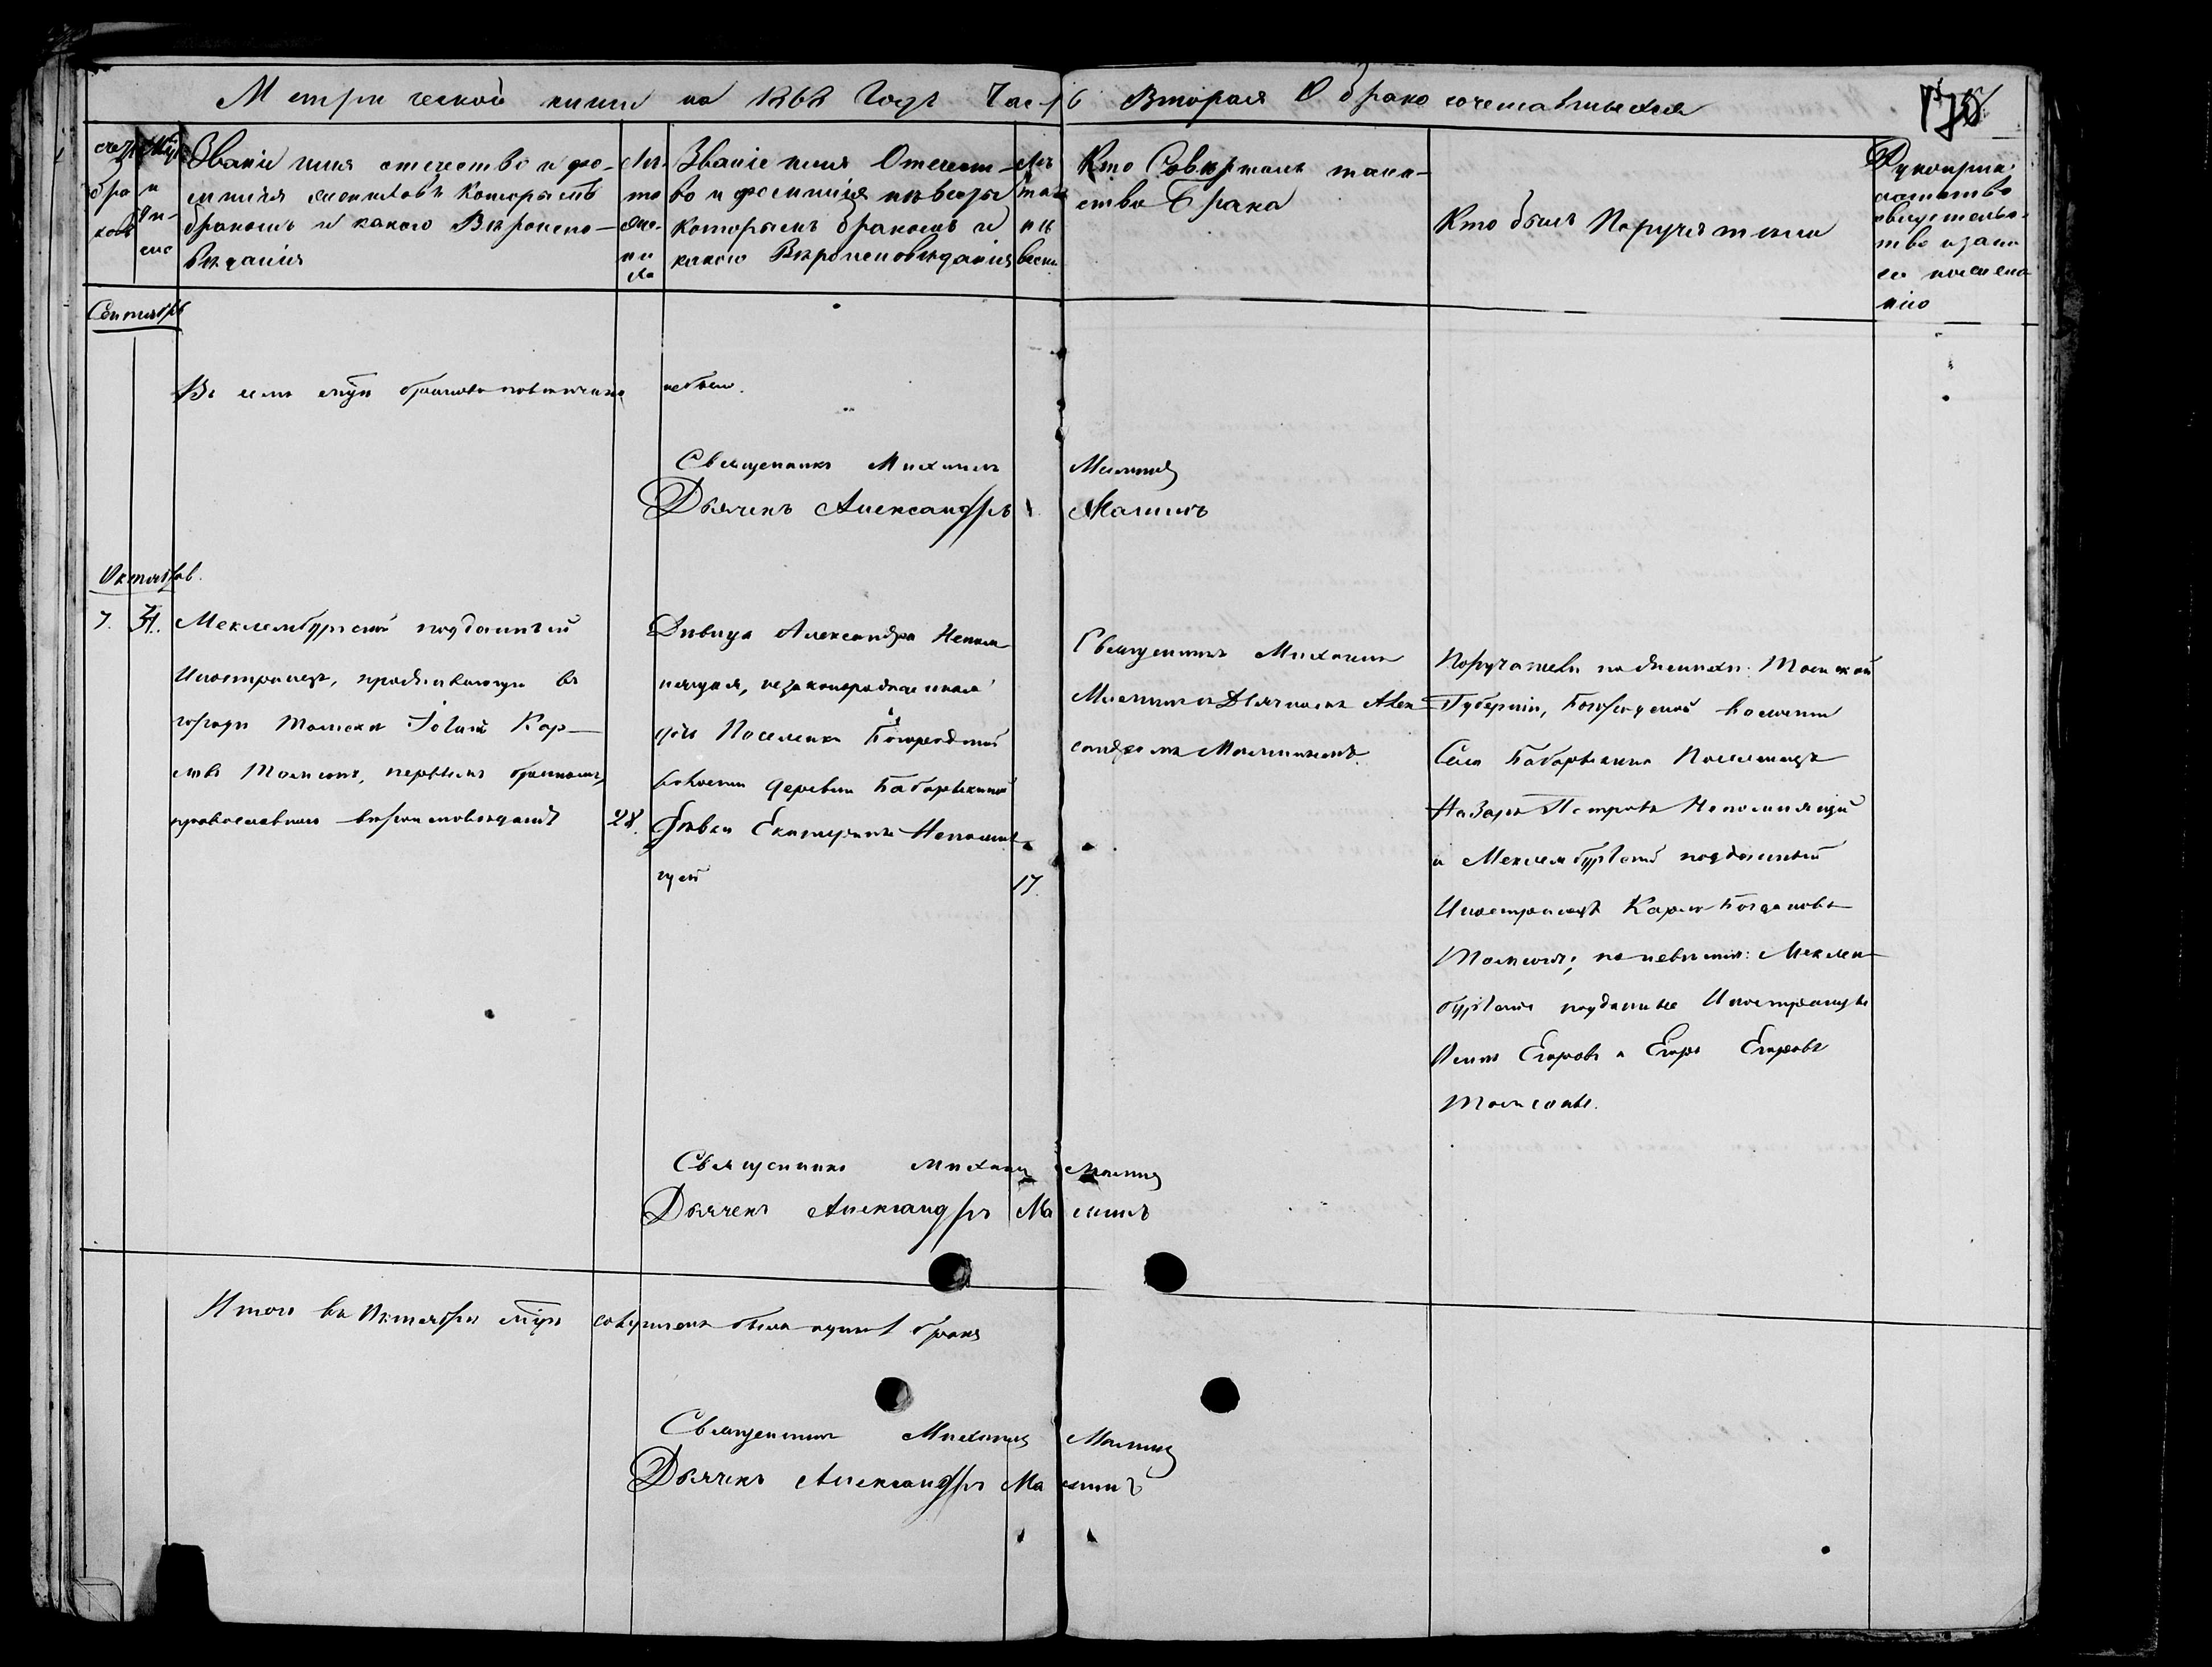 Метрической книги на 1862 Годъ Часть Вторая О бракосочетавшихся
175
счетъ браковъ
Мѣсяцъ и число
Званіе имя отечество и фа-
милія жениховъ которымъ
бракомъ и какого Вѣроиспо-
вѣданія
Лѣ-
та
же-
ни
ха
Званіе имя Отечест-
во и фамилія невѣсты
которымъ бракомъ и
какого Вѣроисповѣданія
Лѣ
та
не
вѣсты
Кто Совершалъ таин-
ство Брака
Кто былъ Поручителями
Рукоприк-
ладство
свидетельс-
тво и запи
си по жела
нію
Сентябрь
Въ семъ м҃цѣ браковѣнчанныхъ не было.
Священникъ Михаилъ Малинъ
Дьячекъ Александръ Малинъ
Октябрь.
7.
Мекленбургской подданный
Иностранецъ, проживающій въ
городѣ Томскѣ Іоганъ Кар-
ловъ Томсонъ, первымъ бракомъ,
православнаго вѣроисповѣданія
28.
Дѣвица Александра Непом-
нящая, незаконнорожденная
дочь Поселенки Богородской
волости деревни Бабарыкиной
дѣвки Екатерины Непомня-
щей
17.
Священникъ Михаилъ
Малинъ и Дьячекъ Алек-
сандромъ Малинымъ.
Поручатели по женихѣ: Томской
Губерніи, Богородской волости
Села Бабарыкина Поселенецъ
Назаръ Петровъ Непомнящій
и Мекленбургской подданный
Иностранецъ Карлъ Богдановъ
Томсонъ; по невѣстѣ: Меклен-
бургскіе подданные Иностранцы
Осипъ Егоровъ и Егоръ Егоровъ
Томсоны.
Священникъ Михаилъ Малинъ
Дьячекъ Александръ Малинъ
Итого въ Октябрѣ м҃цѣ совершенъ былъ одинъ 1 бракъ
Священникъ Михаилъ Малинъ
Дьячекъ Александръ Малинъ